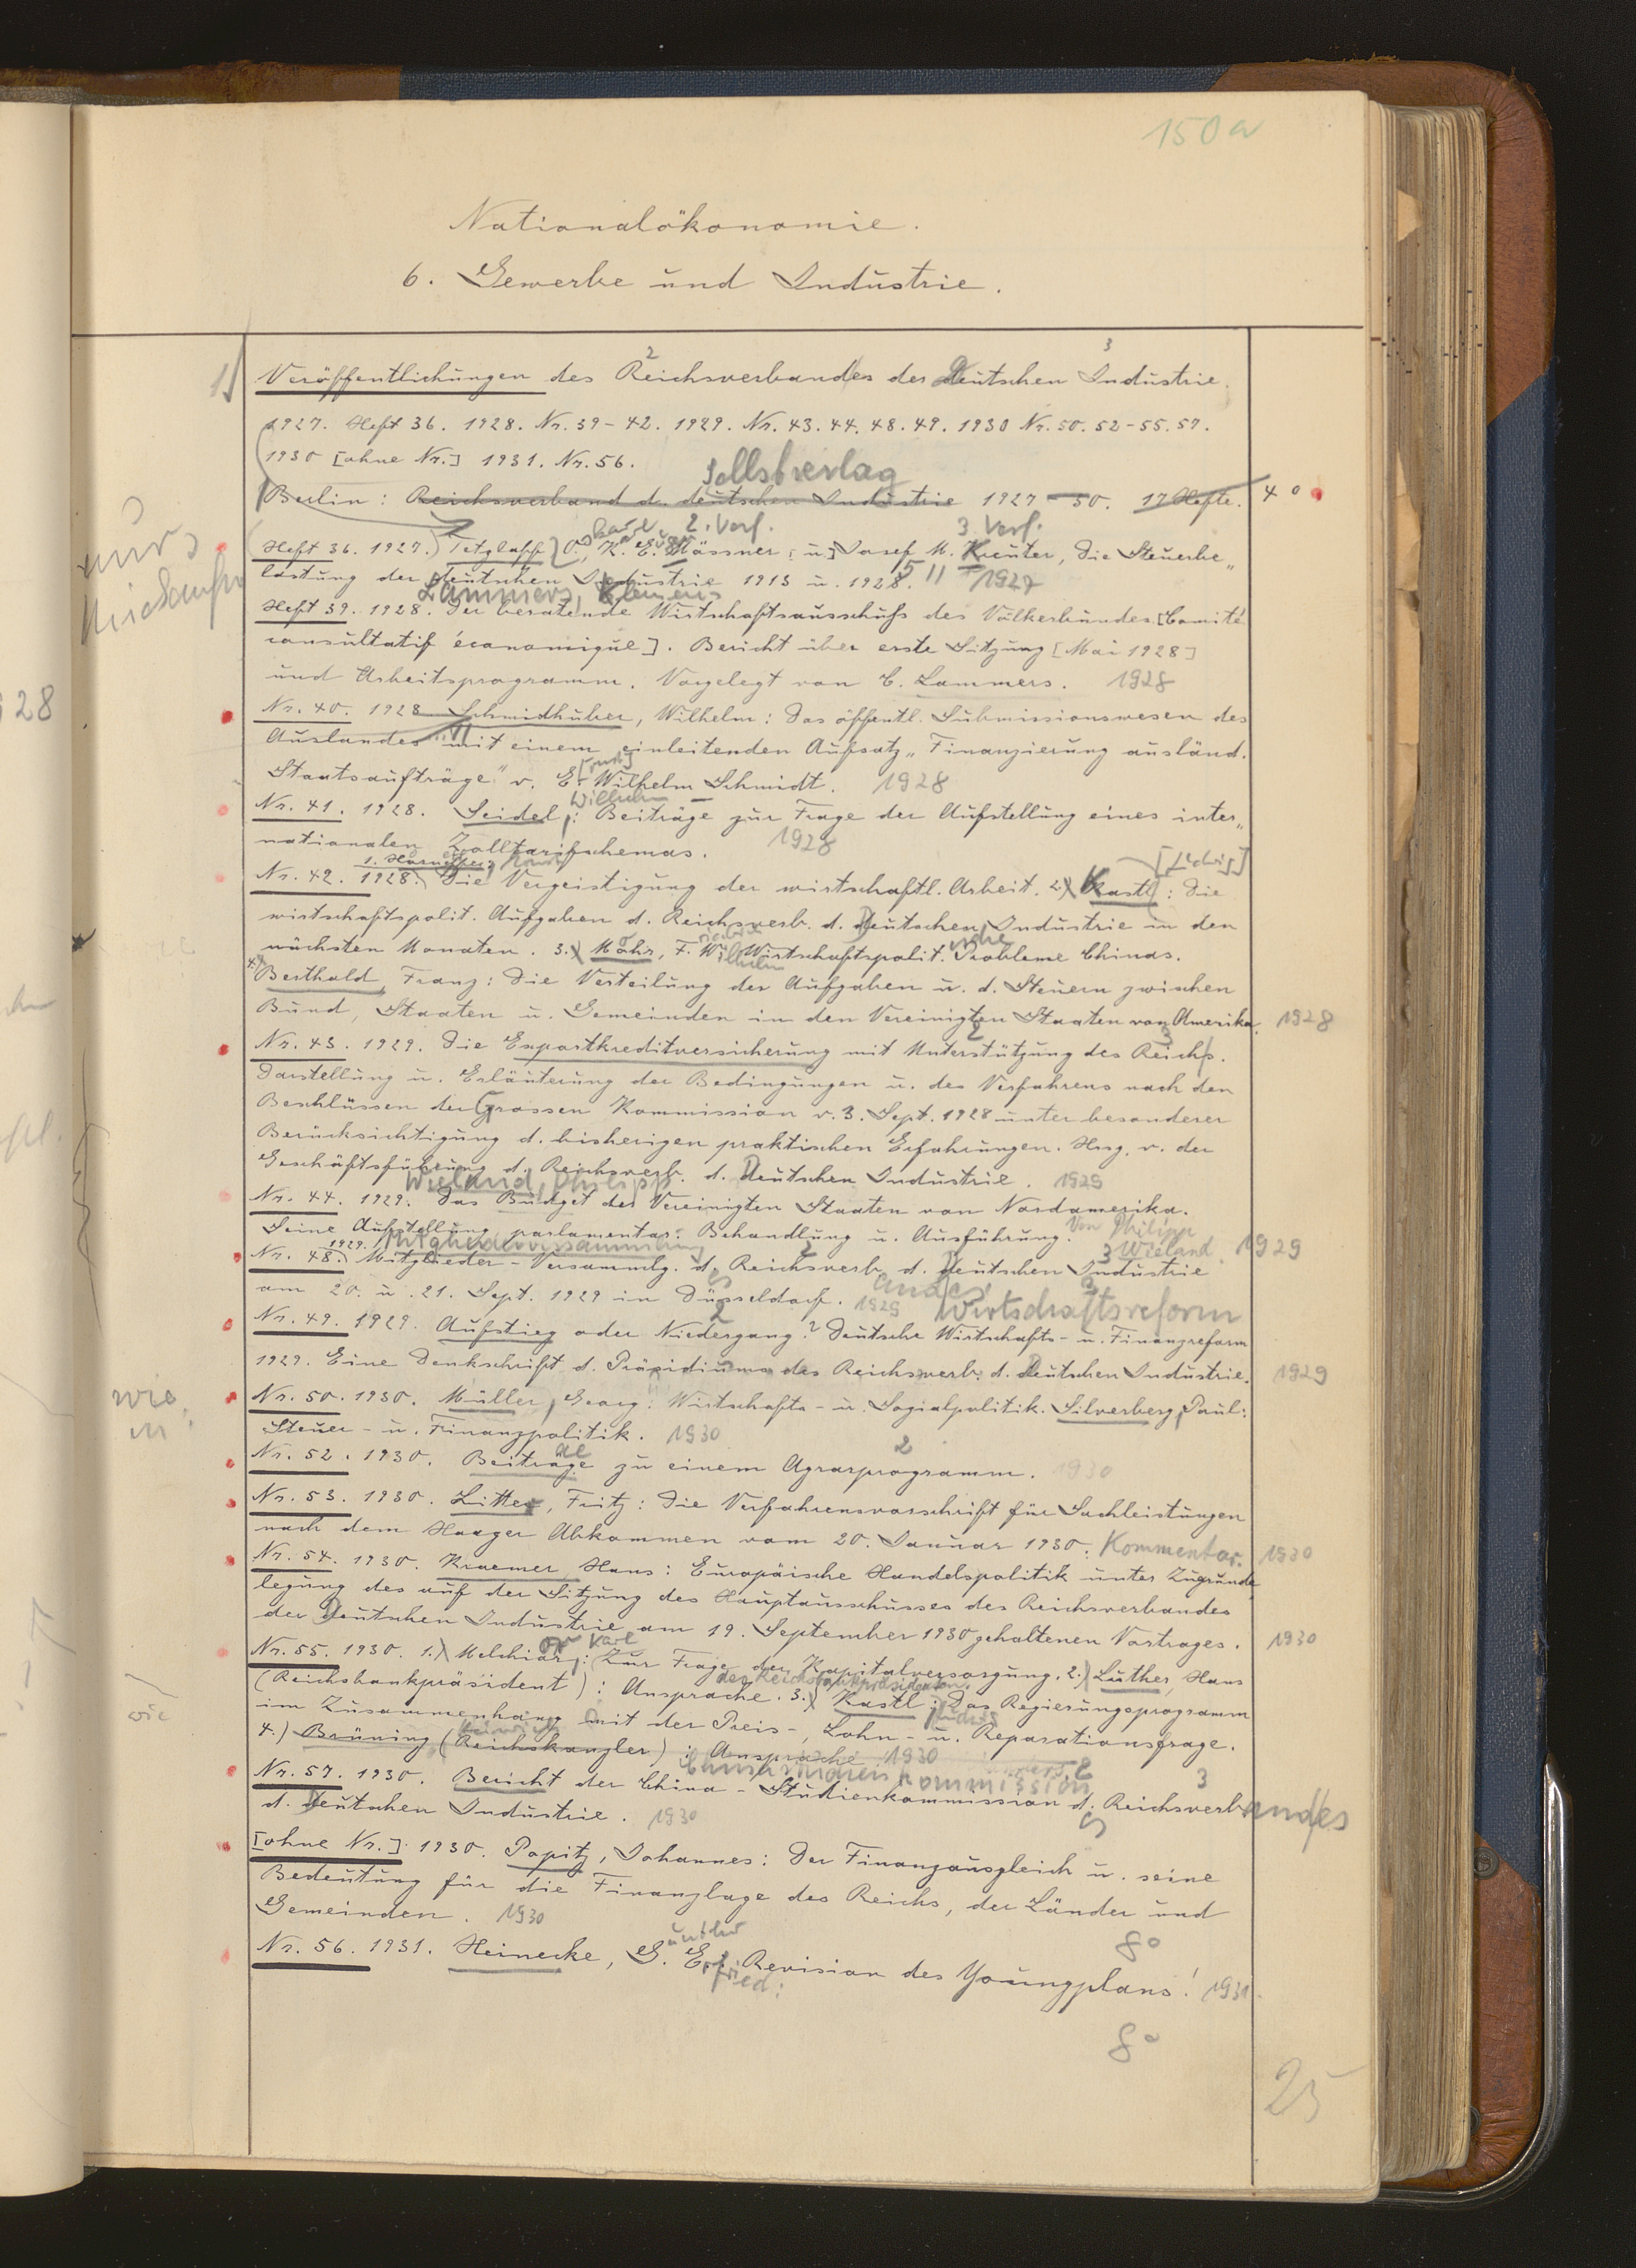 150a
Nationalökonomie.
6. Gewerbe und Industrie.
2 3
Veröffentlichungen des Reichsverbandes der Deutschen Industrie.
1927. Heft 36. 1928. Nr. 39-42. 1929. Nr. 43. 44. 48. 49. 1930 Nr. 50. 52-55. 57.
1930 [ohne Nr.] 1931. Nr. 56.
Selbstverlag
Berlin: Reichsverband d. deutschen Industrie 1927-30. 17 Hefte. 4°
2. Verf. 3. Verf.
Heft 36. 1927.) Tetzlaff, O., K. E. Mässner [u.] Josef M. Kreuter, Die Steuerbe„
lastung der Deutschen Industrie 1913 u. 1928. 1927
Lammers, Klemens
Heft 39. 1928. Der beratende Wirtschaftsausschuss des Völkerbundes [Comité
consultatif économique]. Bericht über erste Sitzung [Mai 1928]
und Arbeitsprogramm. Vorgelegt von C. Lammers. 1928
Nr. 40. 1928 Schmidhuber, Wilhelm: Das öffentl. Submissionswesen des
Auslandes mit einem einleitenden Aufsatz „Finanzierung ausländ.
Staatsaufträge" v. E. Wilhelm Schmidt. 1928
Wilhelm
Nr. 41. 1928. Seidel: Beiträge zur Frage der Aufstellung eines inter„
nationalen Zolltarifschemas. 1928
[Ludwig]
Nr. 42. 1928. Die Vergeistigung der wirtschaftl. Arbeit. 2) Kastl: Die
wirtschaftspolit. Aufgaben d. Reichsverb. d. Deutschen Industrie in den
nächsten Monaten. 3.) Mohr, F. W. Wirtschaftspolit. Probleme Chinas.
4) Berthold, Franz: Die Verteilung der Aufgaben u. d. Steuern zwischen
Bund, Staaten u. Gemeinden in den Vereinigten Staaten von Amerika. 1928
Nr. 43. 1929. Die Exportkreditversicherung mit Unterstützung des Reichs.
Darstellung u. Erläuterung der Bedingungen u. des Verfahrens nach den
Beschlüssen der Grossen Kommission v. 3. Sept. 1928 unter besonderer
Berücksichtigung d. bisherigen praktischen Erfahrungen. Hrsg. v. der
Geschäftsführung d. Reichsverb. d. Deutschen Industrie. 1929
Wieland, Philipp
Nr. 44. 1929. Das Budget der Vereinigten Staaten von Nordamerika.
Seine Aufstellung, parlamentar. Behandlung u. Ausführung. Von Philipp Wieland. 1929
Mitgliederversammlung
Nr. 48. 1929. Mitglieder-Versammlg. d. Reichsverb. d. Deutschen Industrie
am 20. u. 21. Sept. 1929 in Düsseldorf. 1929
Wirtschaftsreform
Nr. 49. 1929. Aufstieg oder Niedergang? Deutsche Wirtschafts- u. Finanzreform
1929. Eine Denkschrift d. Präsidiums des Reichsverb. d. Deutschen Industrie. 1929
Nr. 50. 1930. Müller, Georg: Wirtschafts- u. Sozialpolitik. Silverberg, Paul:
Steuer- u. Finanzpolitik. 1930
Nr. 52. 1930. Beiträge zu einem Agrarprogramm. 1930
Nr. 53. 1930. Litter, Fritz: Die Verfahrensvorschrift für Sachleistungen
nach dem Haager Abkommen vom 20. Januar 1930. Kommentar. 1930
Nr. 54. 1930. Kraemer, Hans: Europäische Handelspolitik unter Zugrunde
legung des auf der Sitzung des Hauptausschusses des Reichsverbandes
der Deutschen Industrie am 19. September 1930 gehaltenen Vortrages. 1930
Karl
Nr. 55. 1930. 1.) Melchior: Zur Frage der Kapitalversorgung. 2.) Luther, Hans
(Reichsbankpräsident): Ansprache. 3.) Kastl: Das Regierungsprogramm
im Zusammenhang mit der Preis-, Lohn- u. Reparationsfrage.
4.) Brüning (Reichskanzler): Ansprache. 1930
Chinastudienkommission
Nr. 57. 1930. Bericht der China-Studienkommission d. Reichsverbandes
d. Deutschen Industrie. 1930
[ohne Nr.] 1930. Popitz, Johannes: Der Finanzausgleich u. seine
Bedeutung für die Finanzlage des Reichs, der Länder und
Gemeinden. 1930
8°
Nr. 56. 1931. Heinecke, G. E.: Revision des Youngplans! 1931.
8°
25